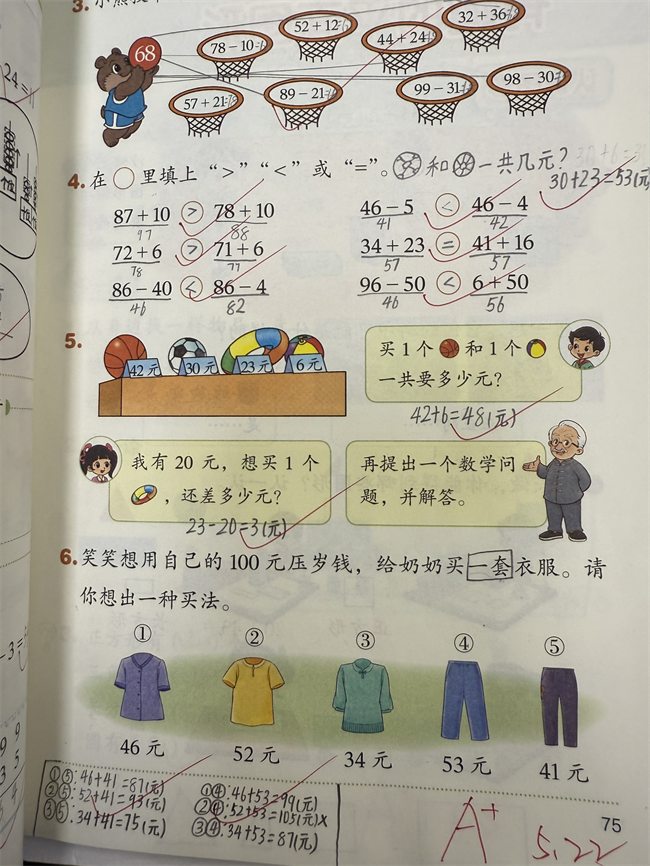 3.
68
78－10
52＋12
44＋24
32＋36
57＋21
89－21
99－31
98－30
24＝
4. 在○里填上“＞”“＜”或“＝”。和一共几元?
30+23=53(元)
87＋10 ＞ 78＋10 46－5 ＜ 46－4
97 88 41 42
72＋6 ＞ 71＋6 34＋23 ＝ 41＋16
78 77 57 57
86－40 ＜ 86－4 96－50 ＜ 6＋50
46 82 46 56
5.
42元 30元 23元 6元
买1个和1个
一共要多少元?
42+6=48(元)
我有20元，想买1个
，还差多少元?
23-20=3(元)
再提出一个数学问
题，并解答。
6. 笑笑想用自己的100元压岁钱，给奶奶买一套衣服。请
你想出一种买法。
① ② ③ ④ ⑤
46元 52元 34元 53元 41元
①⑤:46+41=87(元) ①④:46+53=99(元)
②⑤:52+41=93(元) ②④:52+53=105(元)x
③⑤:34+41=75(元) ③④:34+53=87(元)
A+
5.22
75